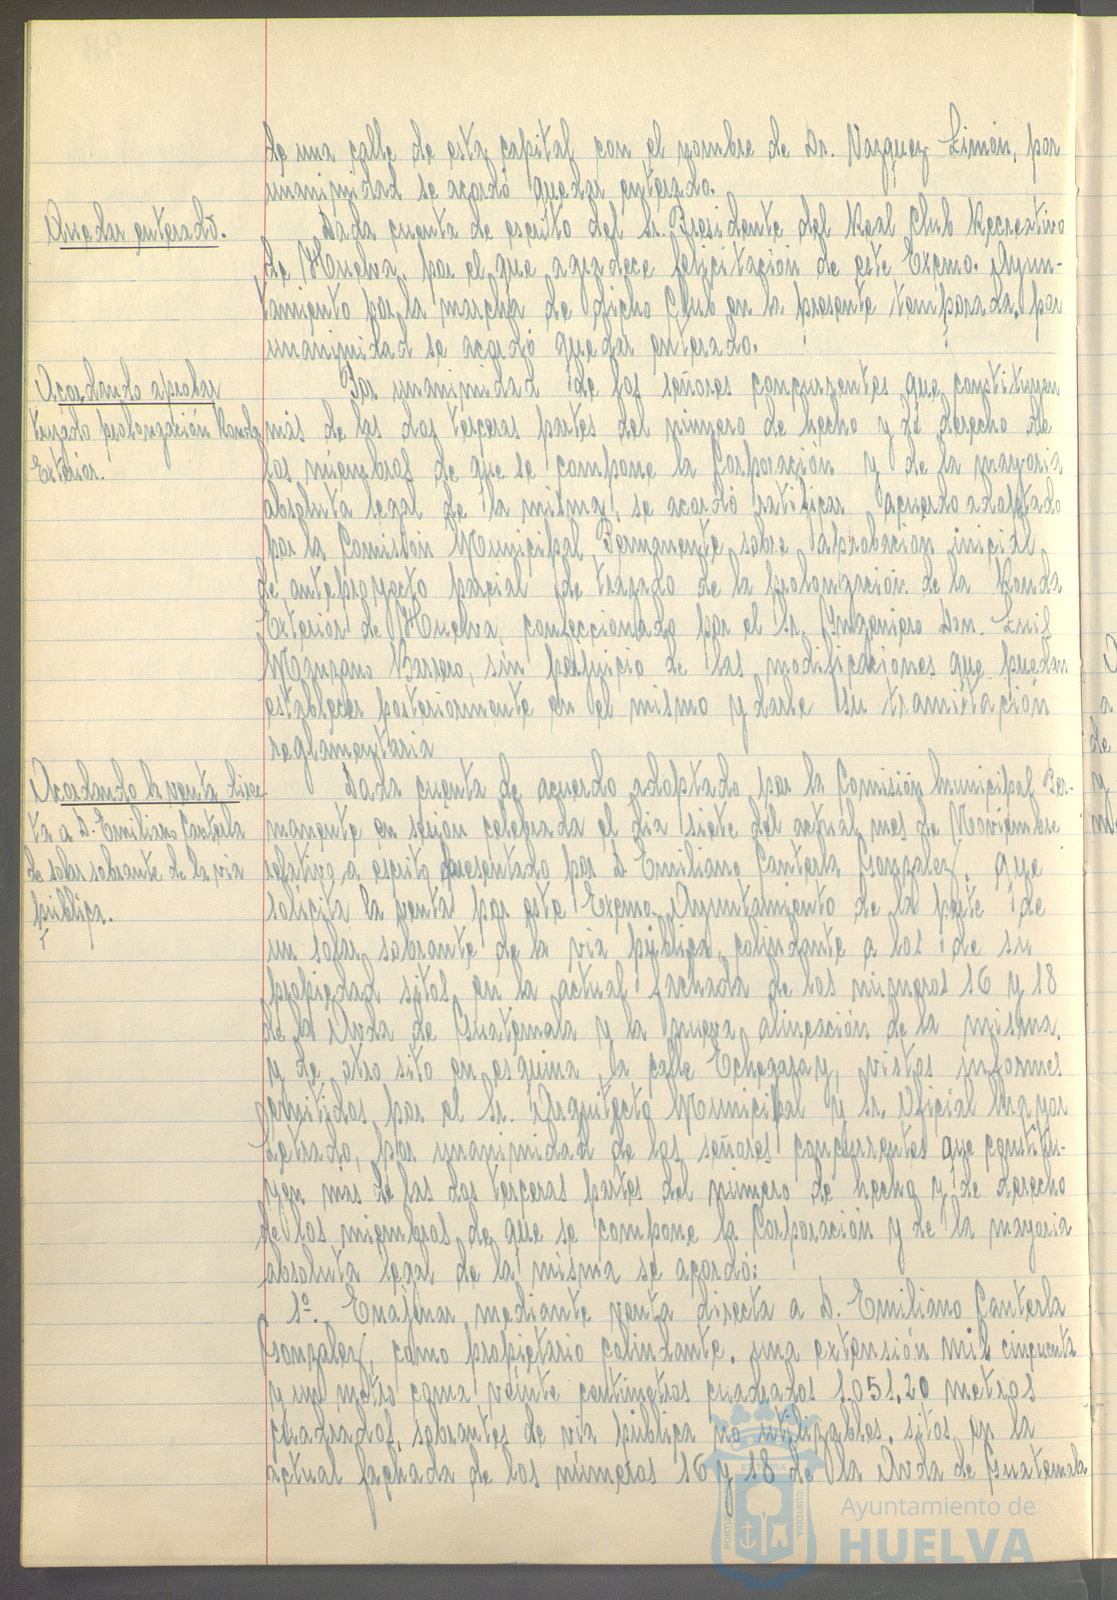 de una calle de esta capital con el nombre de Dr. Vazquez Limón, por
unanimidad se acordó quedar enterado.
Quedar enterado.
Dada cuenta de escrito del Sr. Presidente del Real Club Recreativo
de Huelva, por el que agradece felicitación de este Excmo. Ayun-
tamiento por la marcha de dicho Club en la presente temporada, por
unanimidad se acordó quedar enterado.
Acordando aprobar
trazado prolongación Ronda
Exterior.
Por unanimidad de los señores concurrentes que constituyen
más de las dos terceras partes del número de hecho y de derecho de
los miembros de que se compone la Corporación y de la mayoria
absoluta legal de la misma, se acordó ratificar acuerdo adoptado
por la Comisión Municipal Permanente sobre aprobación inicial
de anteproyecto parcial de trazado de la prolongación de la Ronda
Exterior de Huelva, confeccionado por el Sr. Ingeniero Don Luis
Manzano Barrero, sin perjuicio de las modificaciones que puedan
establecer posteriormente en el mismo y darle su tramitación
reglamentaria
Acordando la venta direc-
ta a D. Emiliano Canterla
de solar sobrante de la via
pública.
Dada cuenta de acuerdo adoptado por la Comisión Municipal Per-
manente en sesión celebrada el dia siete del actual mes de Noviembre
relativo a escrito presentado por D Emiliano Canterla Gonzalez, que
solicita la venta por este Excmo. Ayuntamiento de la parte de
un solar sobrante de la via pública, colindante a los de su
propiedad sitos en la actual fachada de los números 16 y 18
de la Avda de Guatemala y la nueva alineación de la misma,
y de otro sito en esquina la calle Echegaray, vistos informes
emitidos por el Sr. Arquitecto Municipal y Sr. Oficial Mayor
Letrado, por unanimidad de los señores concurrentes que constitu-
yen mas de las dos terceras partes del número de hecho y de derecho
de los miembros de que se compone la Corporación y de la mayoria
absoluta legal de la misma se acordó:
1º.- Enajenar mediante venta directa a D. Emiliano Canterla
Gonzalez, como propietario colindante, una extensión mil cincuenta
y un metro coma veinte centimetros cuadrados 1.051,20 metros
cuadrados, sobrantes de via pública no utilizables, sitos en la
actual fachada de los números 16 y 18 de la Avda de Guatemala
Ayuntamiento de
HUELVA